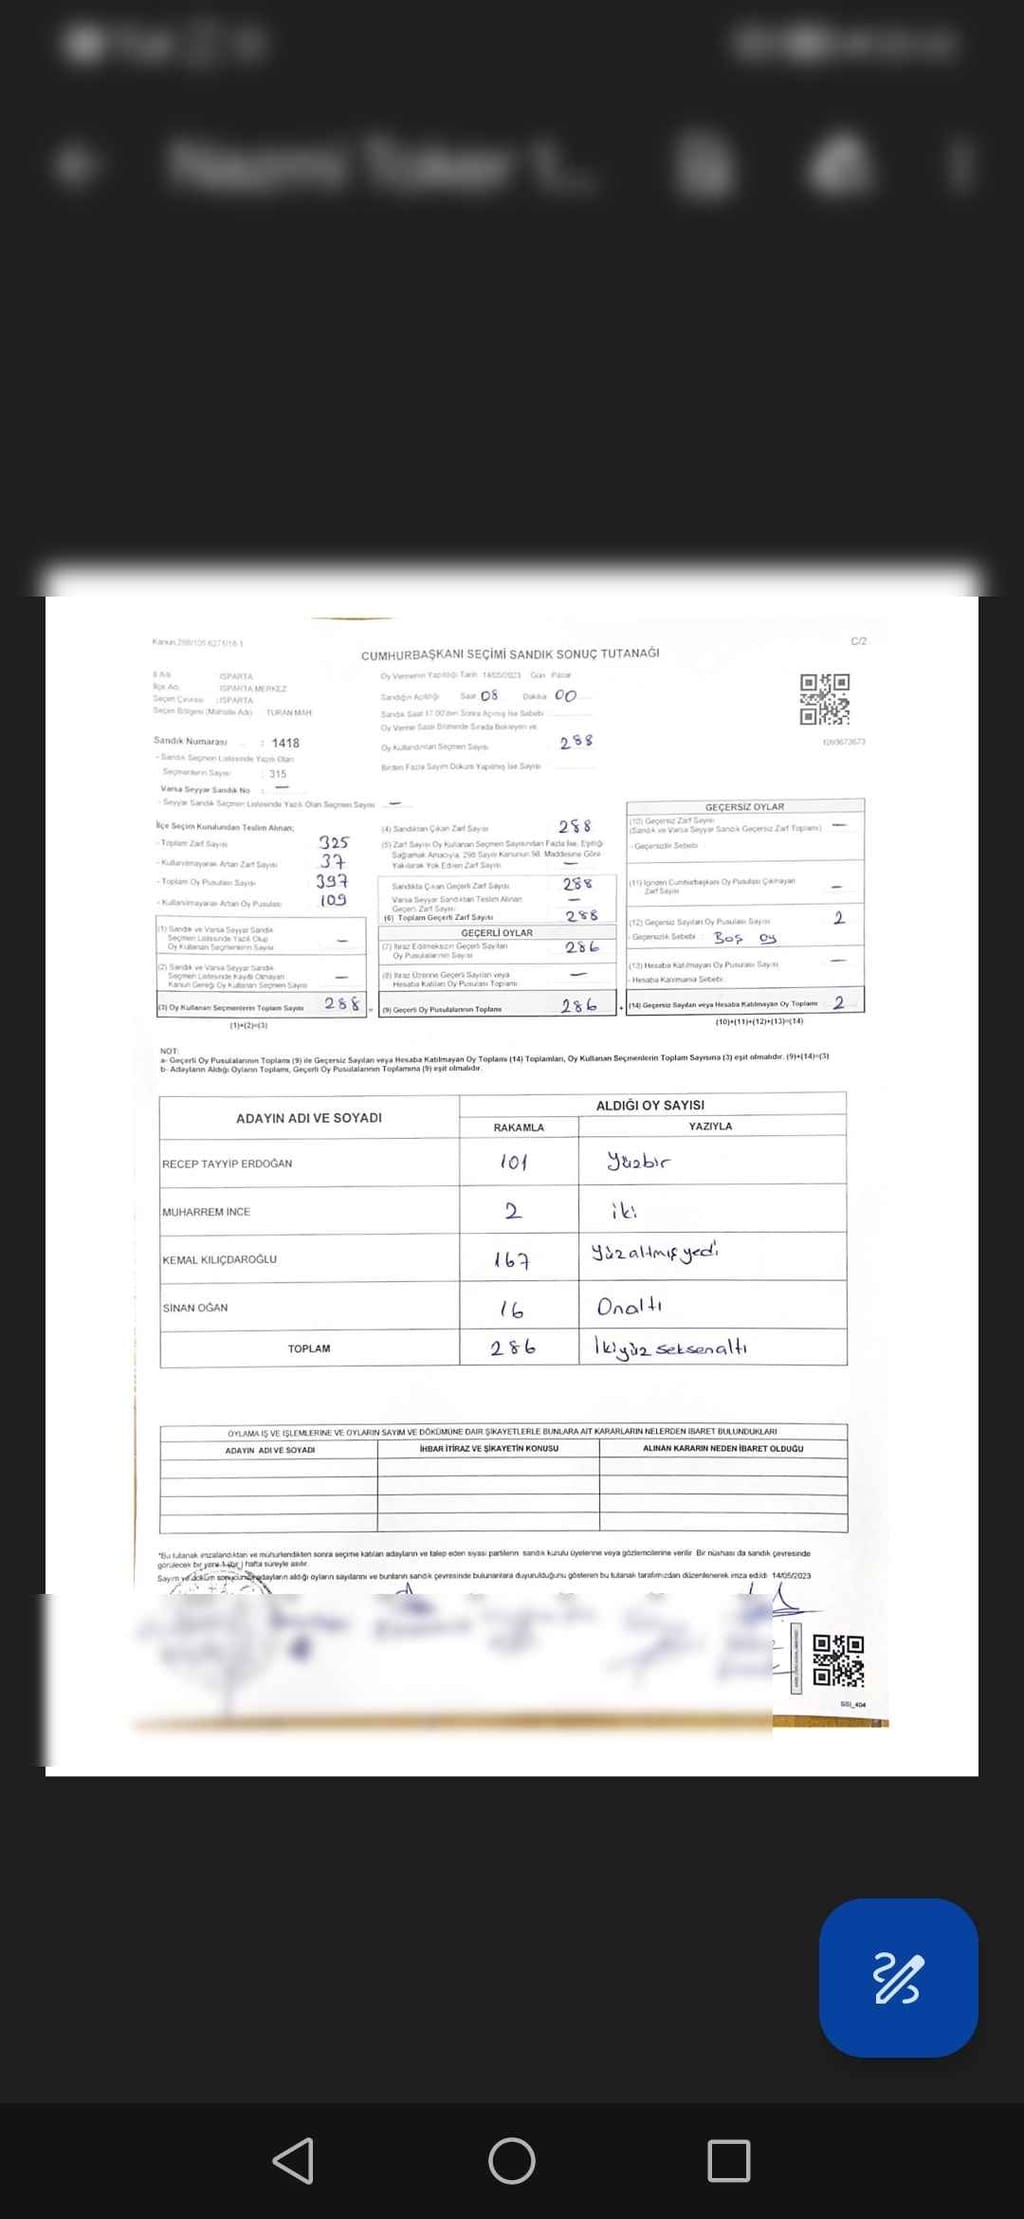 Kanun 298/105 6271/18-1
C/2
CUMHURBAŞKANI SEÇİMİ SANDIK SONUÇ TUTANAĞI
İl Adı ISPARTA
İlçe Adı ISPARTA MERKEZ
Seçim Çevresi : ISPARTA
Seçim Bölgesi (Mahalle Adı) TURAN MAH
Oy Vermenin Yapıldığı Tarih 14/05/2023 Gün Pazar
Sandığın Açıldığı Saat 08 Dakika 00
Sandık Saat 17.00'den Sonra Açılmış İse Sebebi
Oy Verme Saati Bitiminde Sırada Bekleyen ve
Oy Kullandırılan Seçmen Sayısı 288
Birden Fazla Sayım Döküm Yapılmış İse Sayısı
1260673673
Sandık Numarası : 1418
- Sandık Seçmen Listesinde Yazılı Olan
Seçmenlerin Sayısı : 315
Varsa Seyyar Sandık No : —
- Seyyar Sandık Seçmen Listesinde Yazılı Olan Seçmen Sayısı —
İlçe Seçim Kurulundan Teslim Alınan;
- Toplam Zarf Sayısı 325
- Kullanılmayarak Artan Zarf Sayısı 37
- Toplam Oy Pusulası Sayısı 397
- Kullanılmayarak Artan Oy Pusulası 109
(1) Sandık ve Varsa Seyyar Sandık
Seçmen Listesinde Yazılı Olup
Oy Kullanan Seçmenlerin Sayısı —
(2) Sandık ve Varsa Seyyar Sandık
Seçmen Listesinde Kaydı Olmayan
Kanun Gereği Oy Kullanan Seçmen Sayısı —
(3) Oy Kullanan Seçmenlerin Toplam Sayısı 288
(1)+(2)=(3)
(4) Sandıktan Çıkan Zarf Sayısı 288
(5) Zarf Sayısı Oy Kullanan Seçmen Sayısından Fazla İse, Eşitliği
Sağlamak Amacıyla, 298 Sayılı Kanunun 98. Maddesine Göre
Yakılarak Yok Edilen Zarf Sayısı —
Sandıkta Çıkan Geçerli Zarf Sayısı 288
Varsa Seyyar Sandıktan Teslim Alınan
Geçerli Zarf Sayısı —
(6) Toplam Geçerli Zarf Sayısı 288
GEÇERLİ OYLAR
(7) İtiraz Edilmeksizin Geçerli Sayılan
Oy Pusulalarının Sayısı 286
(8) İtiraz Üzerine Geçerli Sayılan veya
Hesaba Katılan Oy Pusulası Toplamı —
(9) Geçerli Oy Pusulalarının Toplamı 286
GEÇERSİZ OYLAR
(10) Geçersiz Zarf Sayısı
(Sandık ve Varsa Seyyar Sandık Geçersiz Zarf Toplamı) —
- Geçersizlik Sebebi
(11) İçinden Cumhurbaşkanı Oy Pusulası Çıkmayan
Zarf Sayısı —
(12) Geçersiz Sayılan Oy Pusulası Sayısı 2
- Geçersizlik Sebebi : Boş oy
(13) Hesaba Katılmayan Oy Pusulası Sayısı —
- Hesaba Katılmama Sebebi
(14) Geçersiz Sayılan veya Hesaba Katılmayan Oy Toplamı 2
(10)+(11)+(12)+(13)=(14)
NOT:
a- Geçerli Oy Pusulalarının Toplamı (9) ile Geçersiz Sayılan veya Hesaba Katılmayan Oy Toplamı (14) Toplamları, Oy Kullanan Seçmenlerin Toplam Sayısına (3) eşit olmalıdır. (9)+(14)=(3)
b- Adayların Aldığı Oyların Toplamı, Geçerli Oy Pusulalarının Toplamına (9) eşit olmalıdır.
ADAYIN ADI VE SOYADI ALDIĞI OY SAYISI
RAKAMLA YAZIYLA
RECEP TAYYİP ERDOĞAN 101 Yüzbir
MUHARREM İNCE 2 iki
KEMAL KILIÇDAROĞLU 167 Yüzaltmışyedi
SİNAN OĞAN 16 Onaltı
TOPLAM 286 İkiyüz seksenaltı
OYLAMA İŞ VE İŞLEMLERİNE VE OYLARIN SAYIM VE DÖKÜMÜNE DAİR ŞİKAYETLERLE BUNLARA AİT KARARLARIN NELERDEN İBARET BULUNDUKLARI
ADAYIN ADI VE SOYADI İHBAR İTİRAZ VE ŞİKAYETİN KONUSU ALINAN KARARIN NEDEN İBARET OLDUĞU
*Bu tutanak imzalandıktan ve mühürlendikten sonra seçime katılan adayların ve talep eden siyasi partilerin sandık kurulu üyelerine veya gözlemcilerine verilir. Bir nüshası da sandık çevresinde
görülecek bir yere 1 (bir) hafta süreyle asılır.
Sayım ve döküm sonucunda adayların aldığı oyların sayılarını ve bunların sandık çevresinde bulunanlara duyurulduğunu gösteren bu tutanak tarafımızdan düzenlenerek imza edildi 14/05/2023
SSI_404